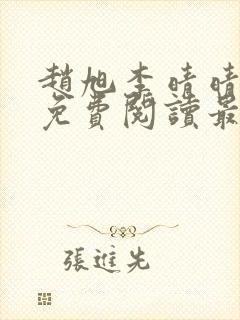 趙旭李晴晴
免費閱讀最
張進先